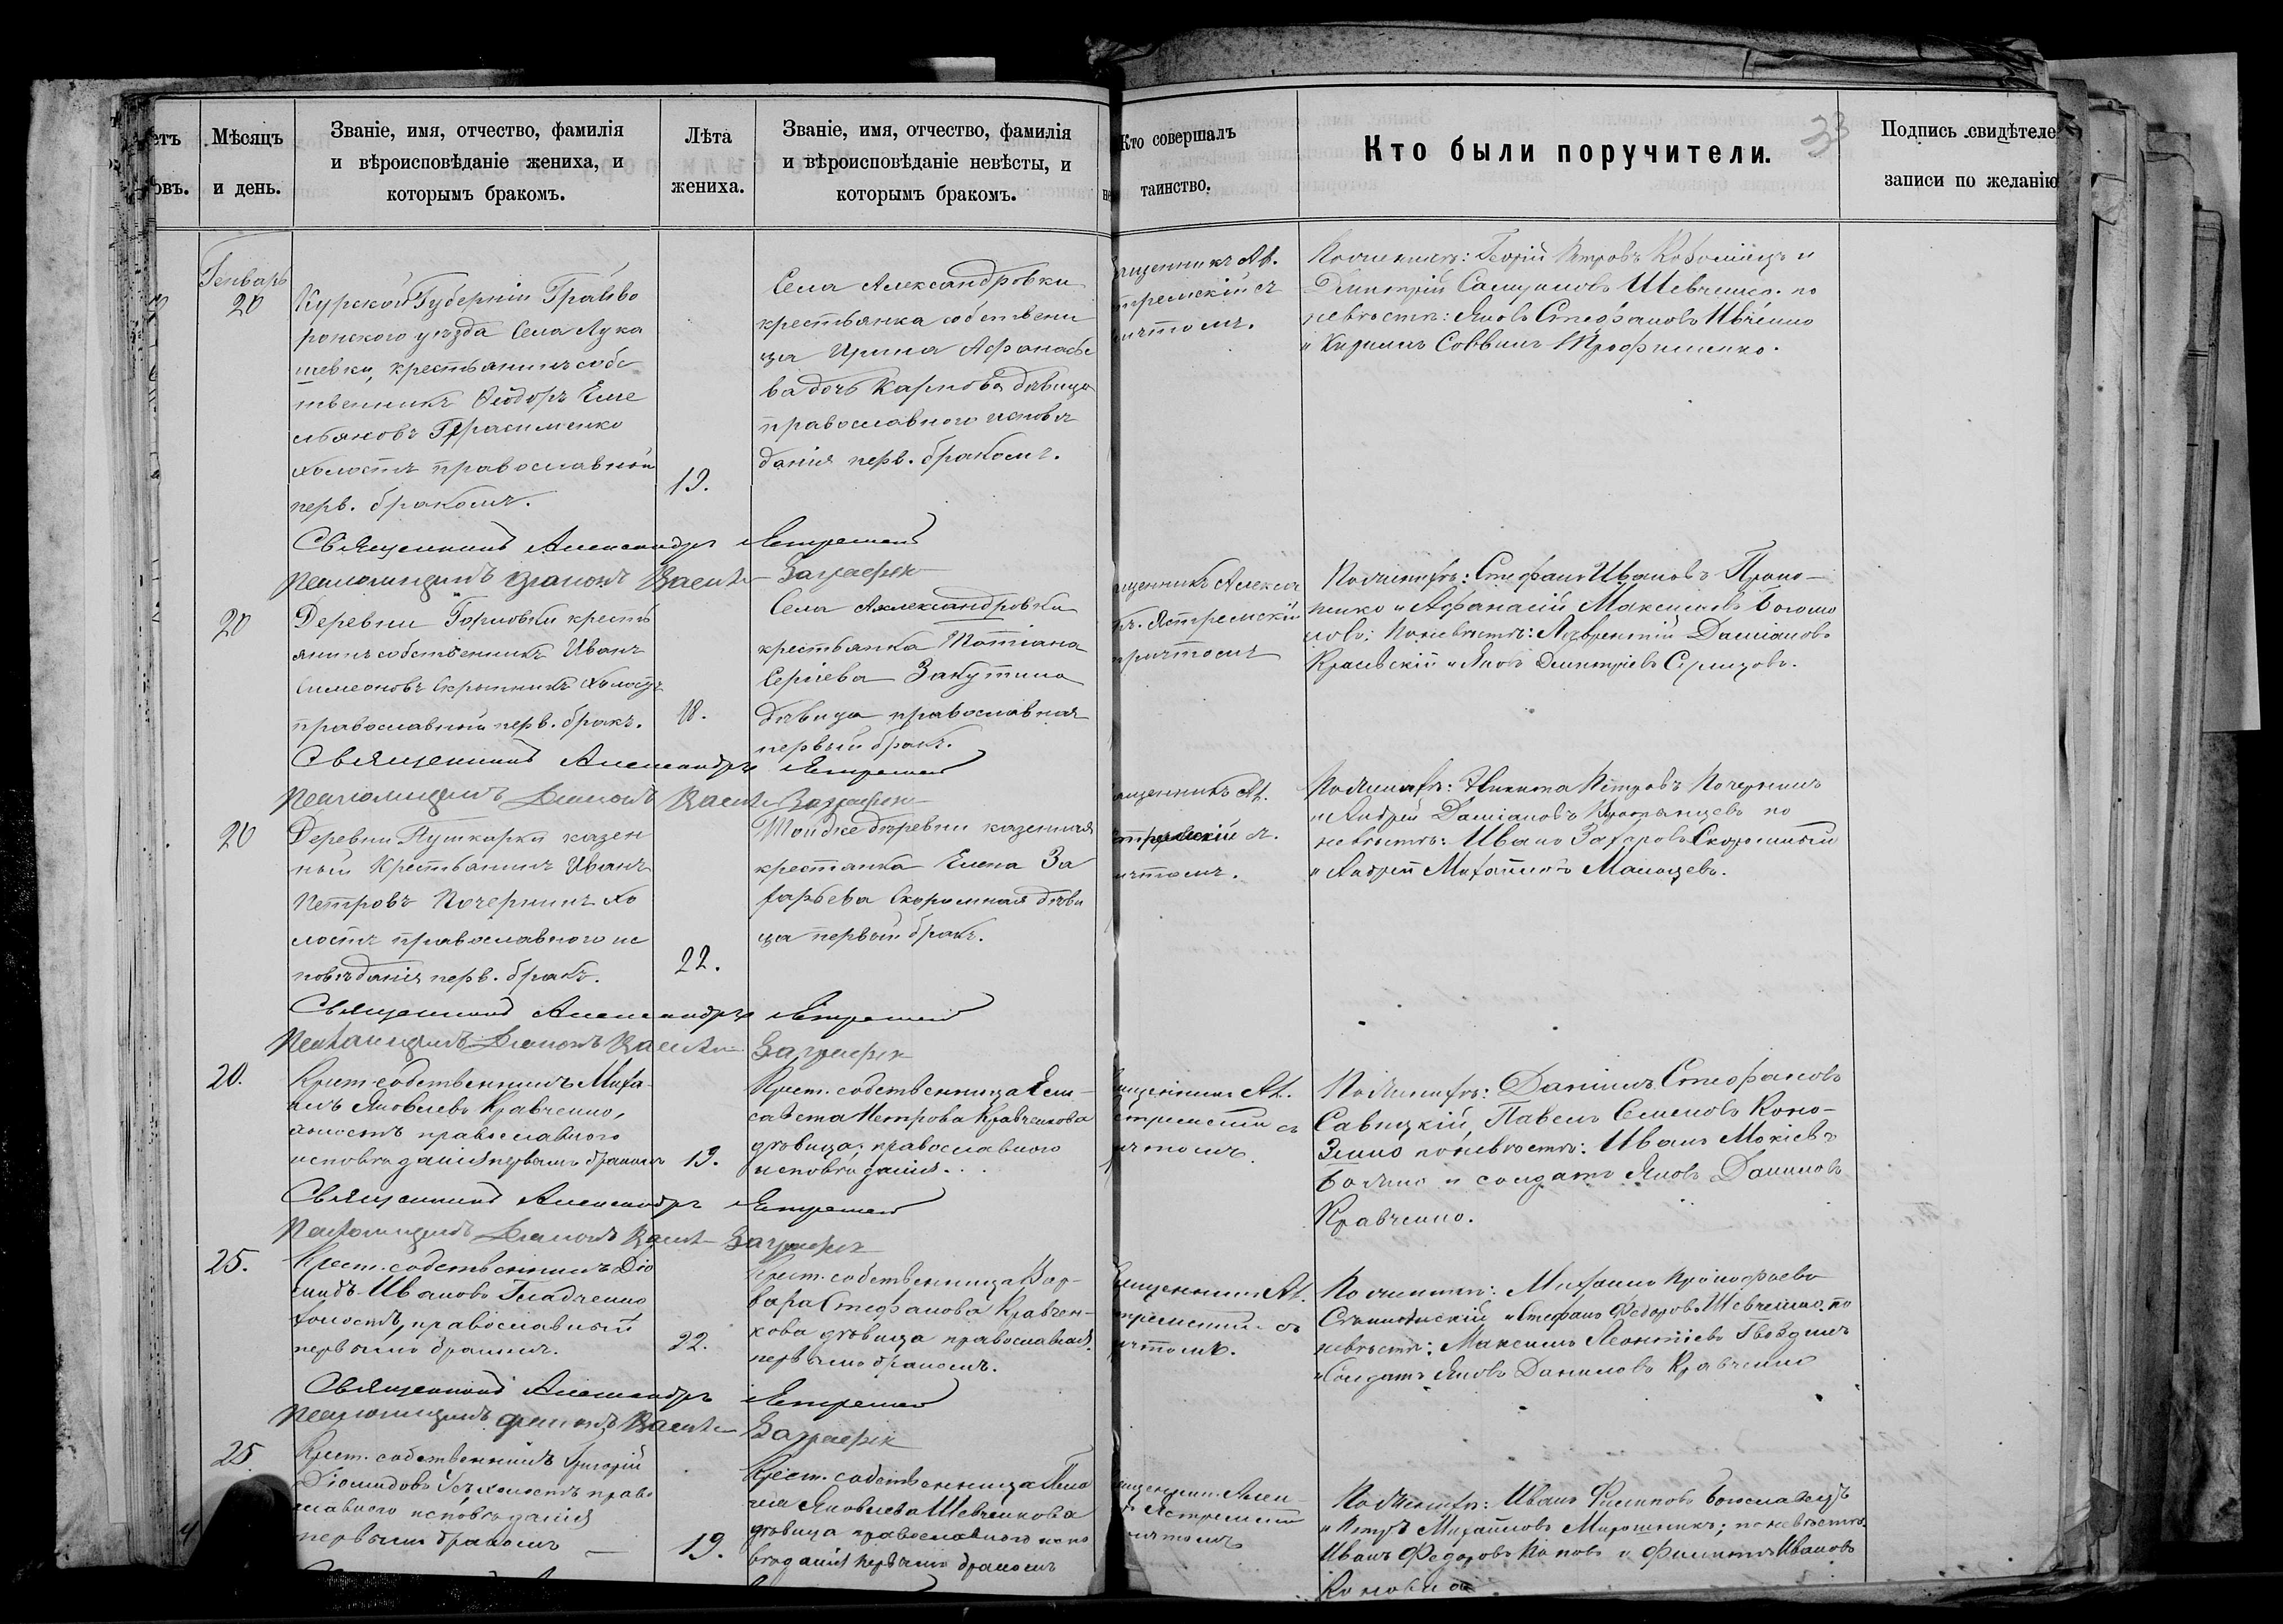 етъ
овъ.
Мѣсяцъ
и день.
Званіе, имя, отчество, фамилія
и вѣроисповѣданіе жениха, и
которымъ бракомъ.
Лѣта
жениха.
Званіе, имя, отчество, фамилія
и вѣроисповѣданіе невѣсты, и
которымъ бракомъ.
Кто совершалъ
таинство.
Кто были поручители.
33
Подпись свидѣтеле
записи по желанію
Генварь
20
Курской Губерніи Грайво
ронскаго уѣзда Села Лука
шевки, крестьянинъ собс
твенникъ Ѳеодоръ Еме
льяновъ Герасименко
холостъ православный
перв. бракомъ.
19.
Села Александровки
крестьянка собственни
ца Ирина Афанасье
ва дочь Карпова дѣвица
православного исповѣ
данія перв. бракомъ.
ященникъ Ал.
стремскій съ
ичтомъ.
По женихѣ: Георгій Петровъ Коломіецъ и
Дмитрій Самуиловъ Шевченко. по
невѣстѣ: Яковъ Стефановъ Ивченко
и Кирилъ Саввинъ Трофименко.
Священникъ Александръ Ястремскій
Псаломщикъ Василій
20
Деревни Горловки кресть
янинъ собственникъ Иванъ
Симеоновъ Скрынникъ холостъ
православный перв. бракъ.
18.
Села Александровки
крестьянка Татіана
Сергіева Закутина
дѣвица православная
первый бракъ.
ященникъ Алекса
ръ Ястремскій
причтомъ
По женихѣ: Стефанъ Ивановъ Проко
пенко и Афанасій Максимовъ Богомо
ловъ; По невѣстѣ: Лаврентій Даміановъ
Краевскій и Яковъ Дмитріевъ
Священникъ Александръ Ястремскій
Псаломщикъ Василій
20
Деревни Пушкарки казен
ный Крестьянинъ Иванъ
Петровъ Почернинъ хо
лостъ православного ис
повѣданія перв. бракъ.
22.
Той же деревни казенная
крестянка Елена За
харьева Скоромная дѣви
ца первый бракъ.
ященникъ Ал.
стремскій съ
ичтомъ.
По женихѣ: Никита Петровъ Почернинъ
и Андрей Даміановъ по
невѣстѣ: Иванъ Захаровъ Скоромный
и Андрей Михайловъ Мальцевъ.
Священникъ Александръ Ястремскій
Псаломщикъ Василій
20.
Крест. собственникъ Миха
илъ Яковлевъ Кравченко,
холостъ православного
исповѣданія первымъ бракомъ
19.
Крест. собственница Ели
савета Петрова Кравченкова
дѣвица, православного
исповѣданія.
ященникъ Ал.
стремскій съ
ичтомъ.
По женихѣ: Даніилъ Стефановъ
Савицкій, Павелъ Семеновъ Коно
по невѣстѣ: Иванъ Мокіевъ
Божко и солдатъ Яковъ Даниловъ
Кравченко.
Священникъ Александръ Ястремскій
Псаломщикъ Василій
25.
Крест. собственникъ Діо
мидъ Ивановъ Гладченко
холостъ, православный
первымъ бракомъ.
22.
Крест. собственница Вар
вара Стефанова Кравчен
кова дѣвица православная
первымъ бракомъ.
ященникъ Ал.
стремскій съ
ичтомъ.
По женихѣ: Михаилъ Прокофьевъ
и Стефанъ Федоровъ Шевченко. по
невѣстѣ: Максимъ Леонтіевъ
и Солдатъ Яковъ Даниловъ Кравченко
Священникъ Александръ Ястремскій
Псаломщикъ Василій
25
Крест. собственникъ Григорій
Діомидовъ холостъ право
славного исповѣданія
первымъ бракомъ
19.
Крест. собственница
Яковлева Шевченкова
дѣвица православного испо
вѣданія первымъ бракомъ
ященникъ Алек
ръ Ястремскій
ичтомъ
По женихѣ: Иванъ Филиповъ Богославецъ
и Петръ Михайловъ Мирошникъ; по невѣстѣ:
Иванъ Федоровъ Поповъ и Филиппъ Ивановъ